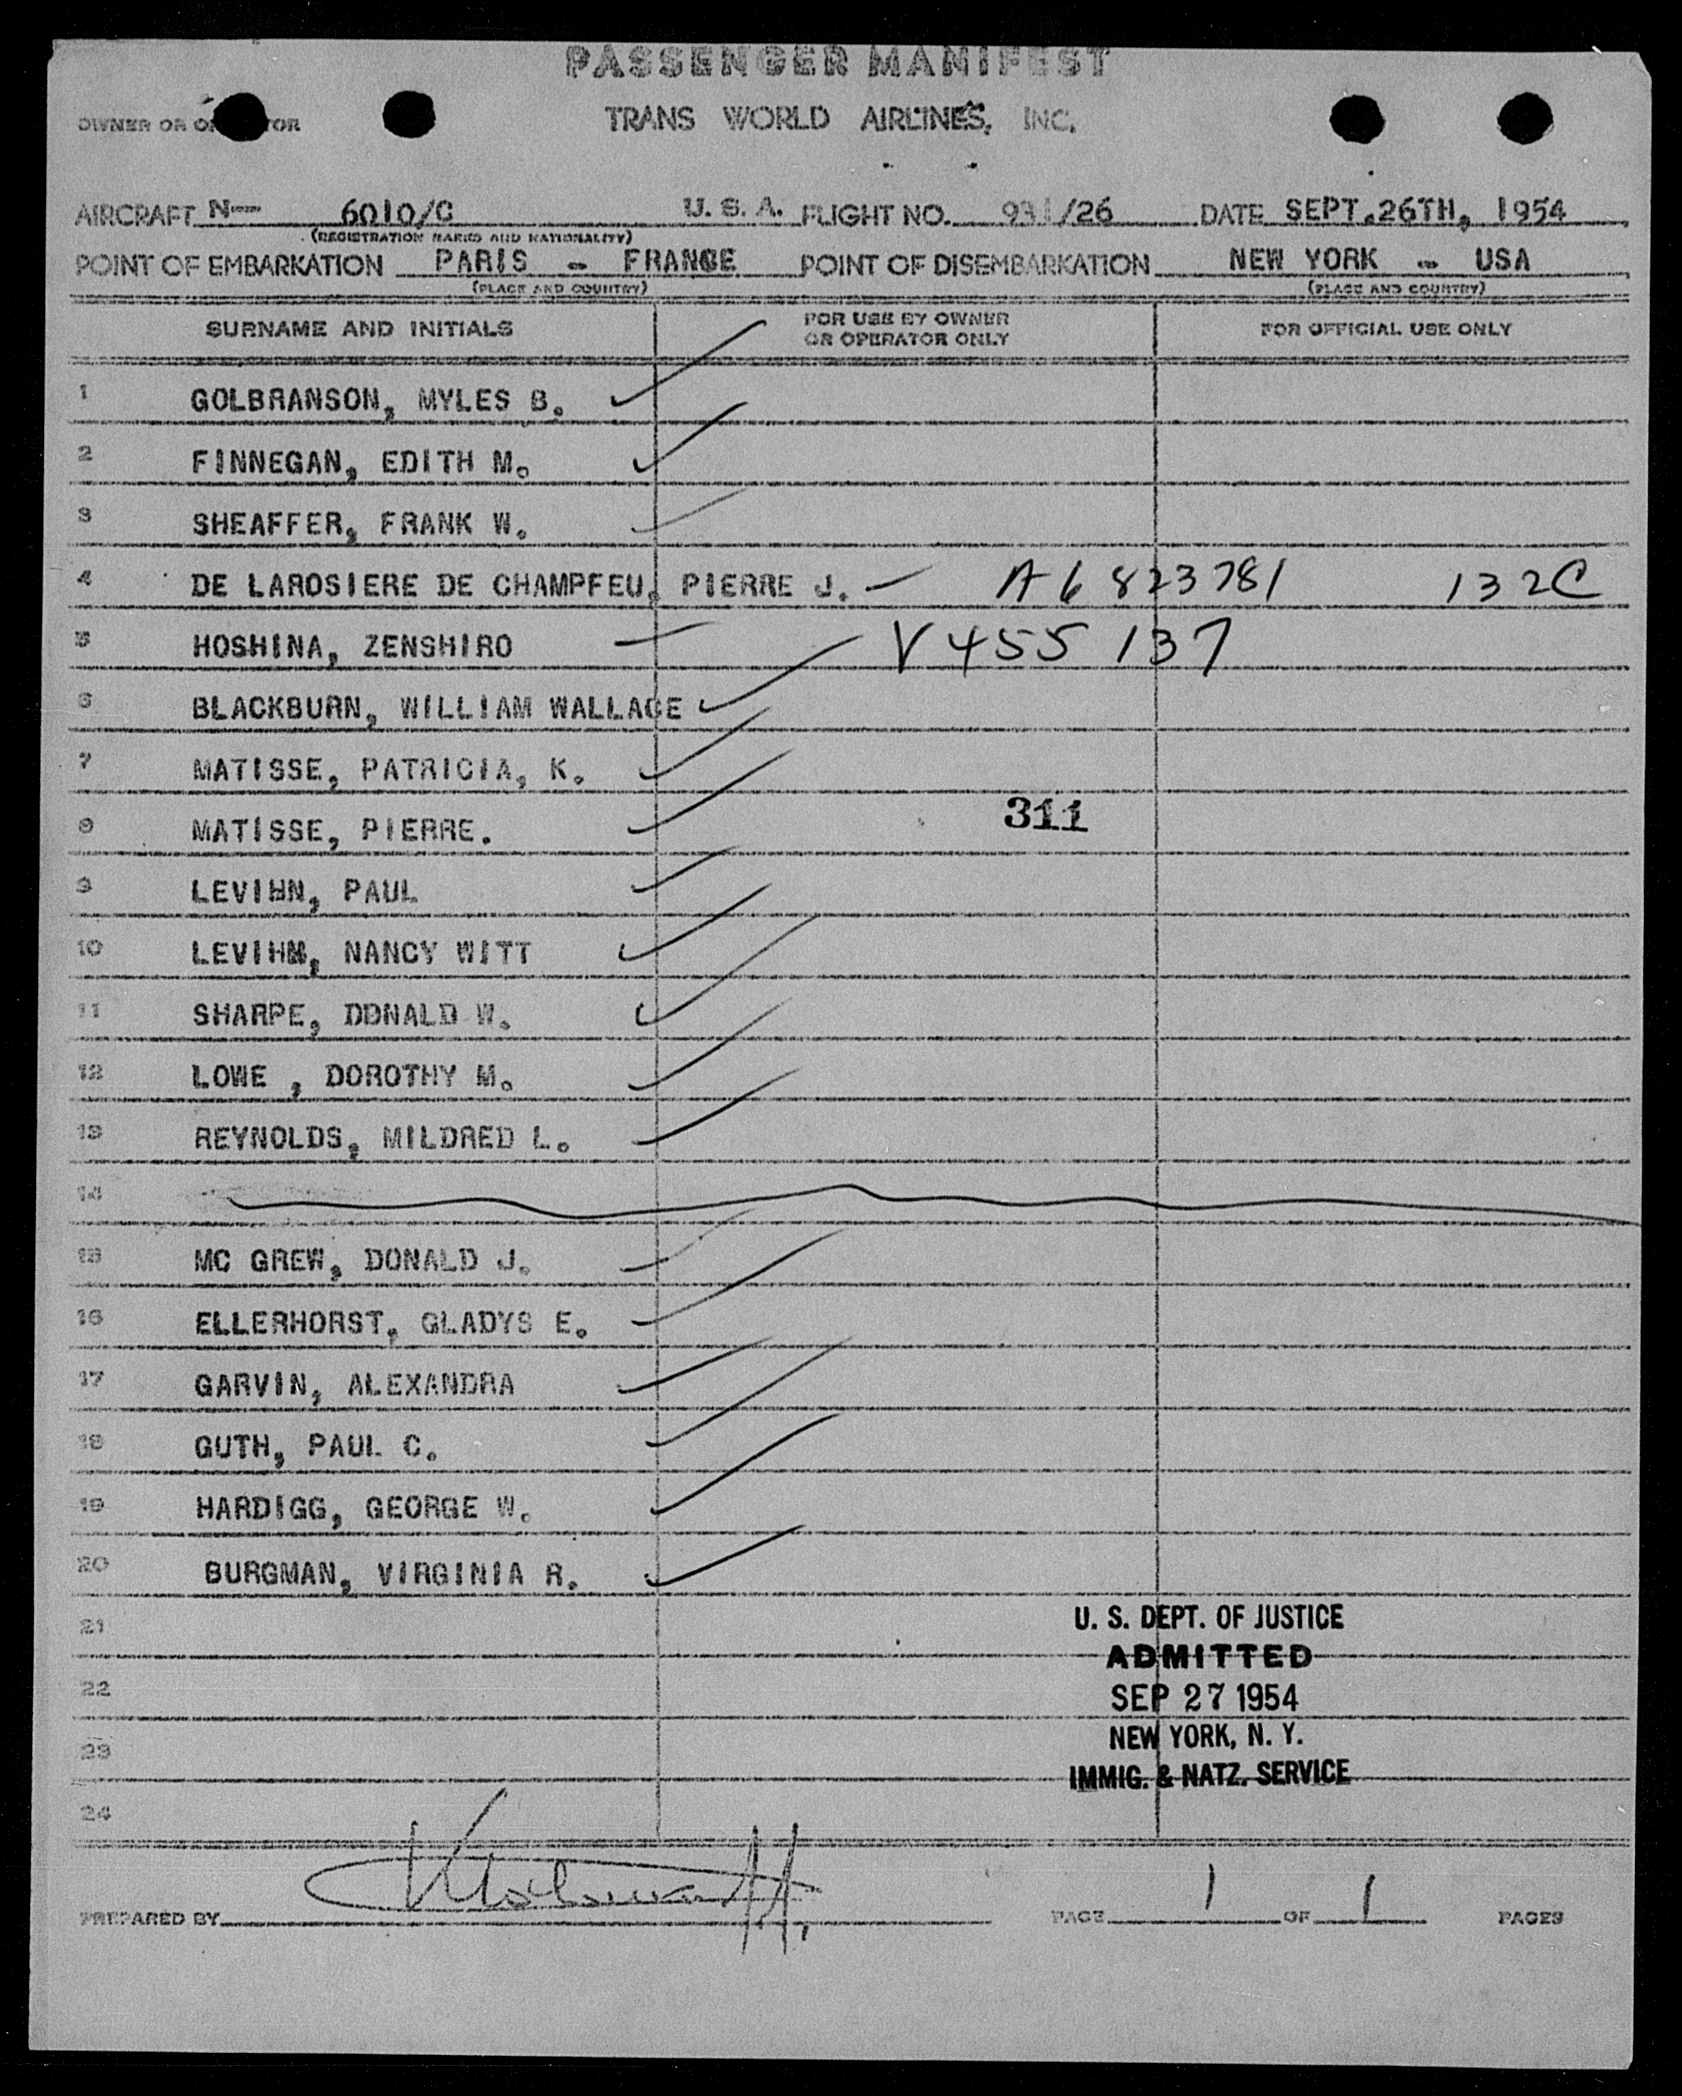 PASSENGER MANIFEST
OWNER OR OPERATOR TRANS WORLD AIRLINES, INC.
AIRCRAFT N— 6010/C U. S. A. FLIGHT NO. 931/26 DATE SEPT.26TH, 1954
(REGISTRATION MARKS AND NATIONALITY)
POINT OF EMBARKATION PARIS - FRANCE POINT OF DISEMBARKATION NEW YORK - USA
(PLACE AND COUNTRY) (PLACE AND COUNTRY)
SURNAME AND INITIALS FOR USE BY OWNER OR OPERATOR ONLY FOR OFFICIAL USE ONLY
1 GOLBRANSON, MYLES B.
2 FINNEGAN, EDITH M.
3 SHEAFFER, FRANK W.
4 DE LAROSIERE DE CHAMPFEU, PIERRE J. — A6 823781 132C
5 HOSHINA, ZENSHIRO V455 137
6 BLACKBURN, WILLIAM WALLACE
7 MATISSE, PATRICIA, K.
8 MATISSE, PIERRE. 311
9 LEVIHN, PAUL
10 LEVIHN, NANCY WITT
11 SHARPE, DONALD W.
12 LOWE , DOROTHY M.
13 REYNOLDS, MILDRED L.
14
15 MC GREW, DONALD J.
16 ELLERHORST, GLADYS E.
17 GARVIN, ALEXANDRA
18 GUTH, PAUL C.
19 HARDIGG, GEORGE W.
20 BURGMAN, VIRGINIA R.
21
22
23
24
U. S. DEPT. OF JUSTICE
ADMITTED
SEP 27 1954
NEW YORK, N. Y.
IMMIG. & NATZ. SERVICE
PREPARED BY PAGE 1 OF 1 PAGES